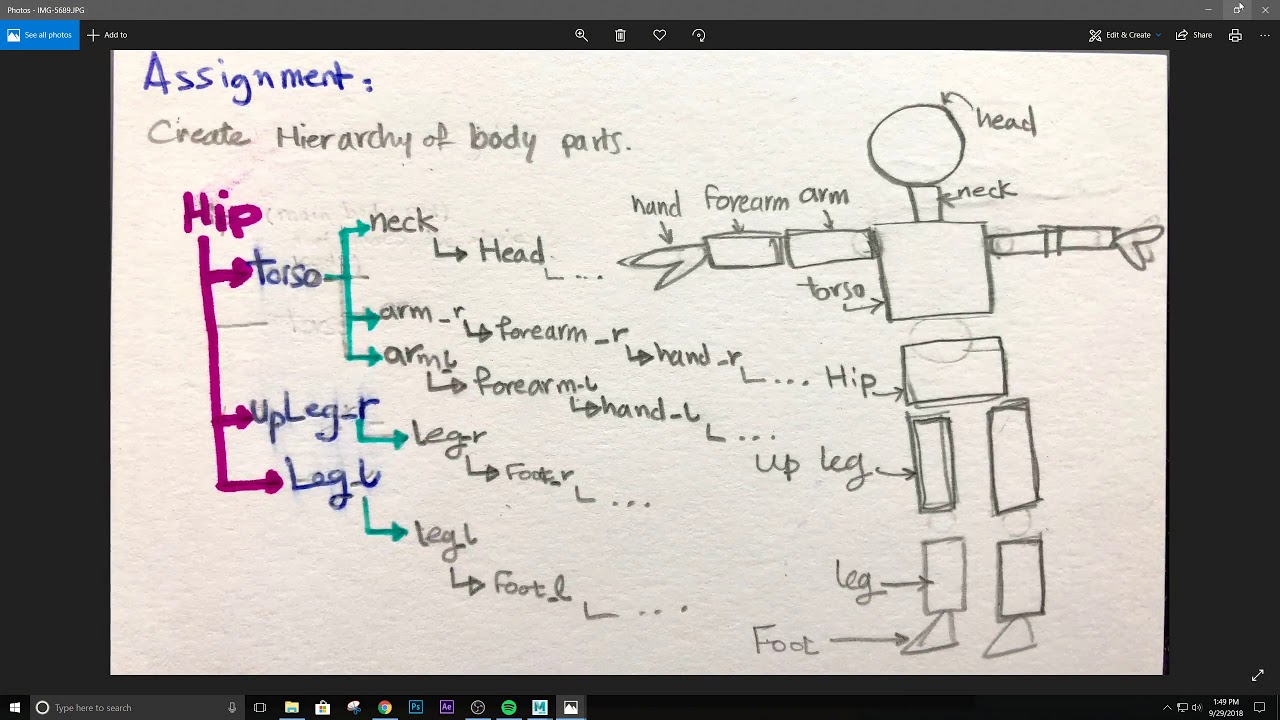 Photos - IMG-5689.JPG
See all photos
Add to
Edit & Create
Share
Assignment:
Create Hierarchy of body parts.
Hip
torso
neck
Head
...
arm_r
forearm_r
hand_r
...
arm_l
forearm_l
hand_l
...
upLeg_r
leg_r
Foot_r
...
Leg_l
leg_l
Foot_l
...
head
neck
hand
forearm
arm
torso
Hip
up leg
leg
Foot
Type here to search
Ps
Ae
M
1:49 PM
9/29/2018